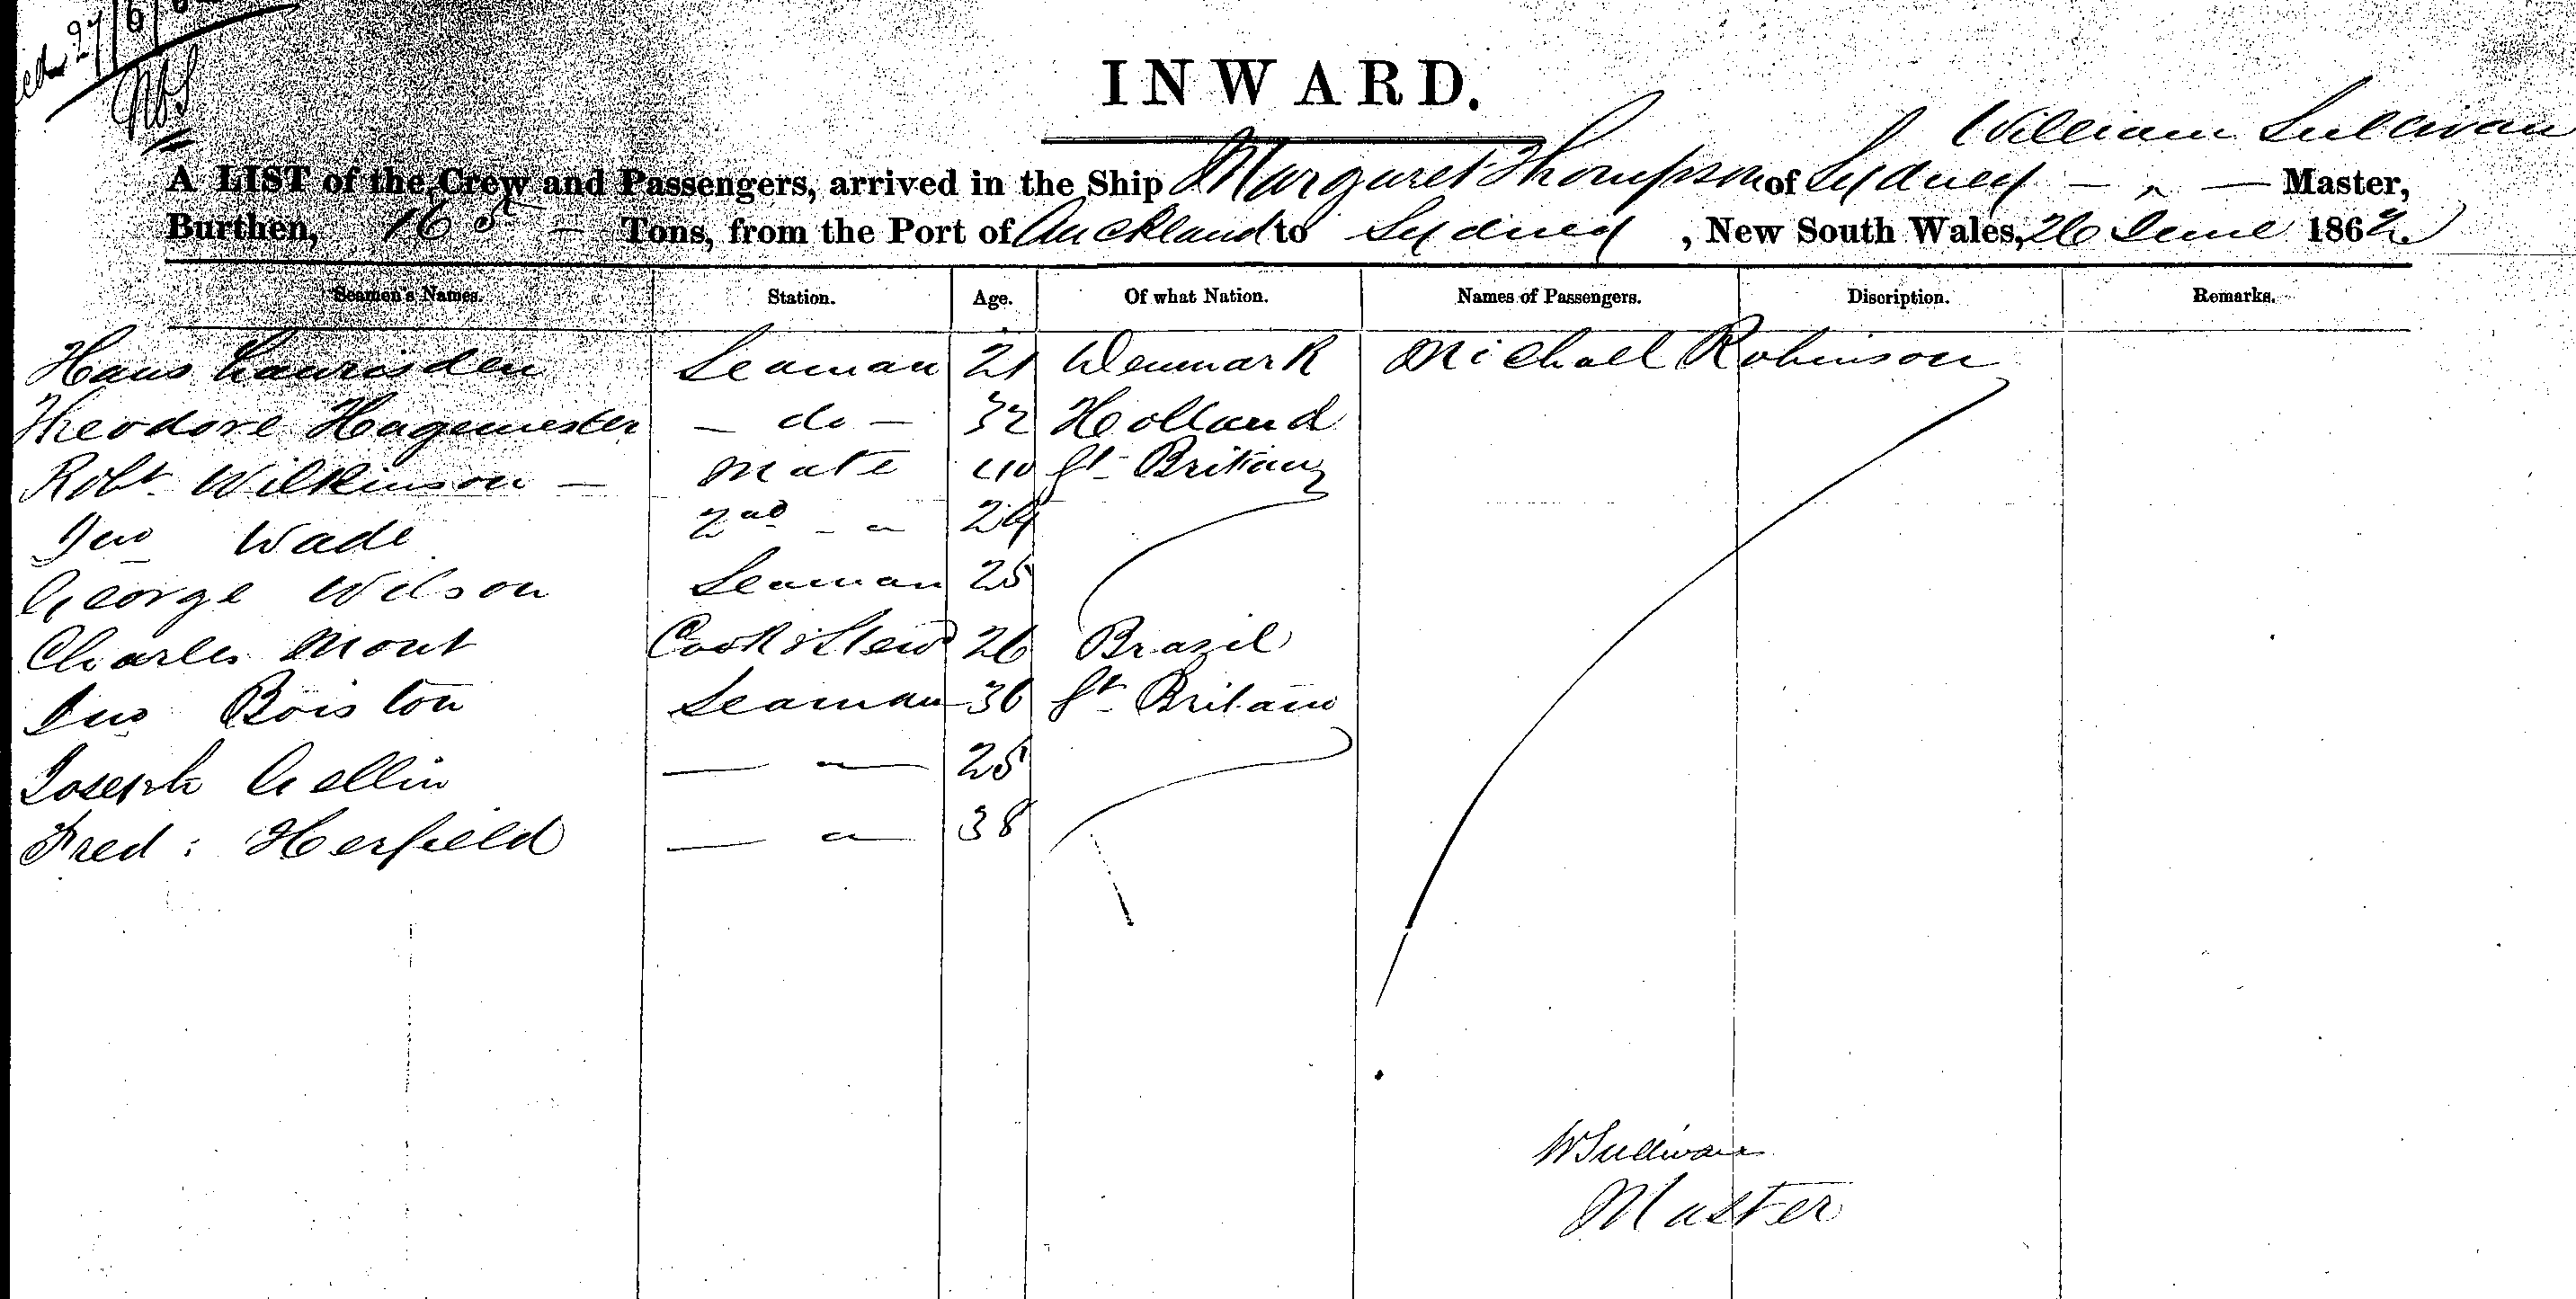 27/6/6
INWARD.
William Sullivan
A LIST of the Crew and Passengers, arrived in the Ship Margaret Thompson of Sydney — " — Master,
Burthen, 165 — Tons, from the Port of Auckland to Sydney, New South Wales, 26 June 1862.
Seamen's Names. Station. Age. Of what Nation. Names of Passengers. Discription. Remarks.
Hans Laurisden Seaman 21 Denmark Michael Robinson
Theodore Hagemester — do — 32 Holland
Robt Wilkinson — Mate 40 Gt Britain
Jno Wade 2nd - " 24
George Wilson Seaman 25
Charles Mont Cook & Stewd 26 Brazil
Jno Boiston Seaman 36 Gt Britain
Joseph Gellin — " — 25
Fred: Herfield — " — 38
WSullivan
Master